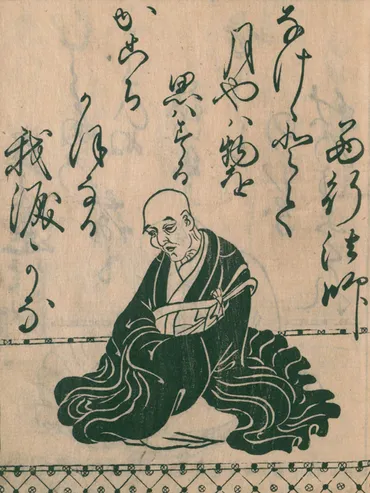 西行法師
なけけとて
月やハ物を
思ハする
かこち
かほなる
我涙かな